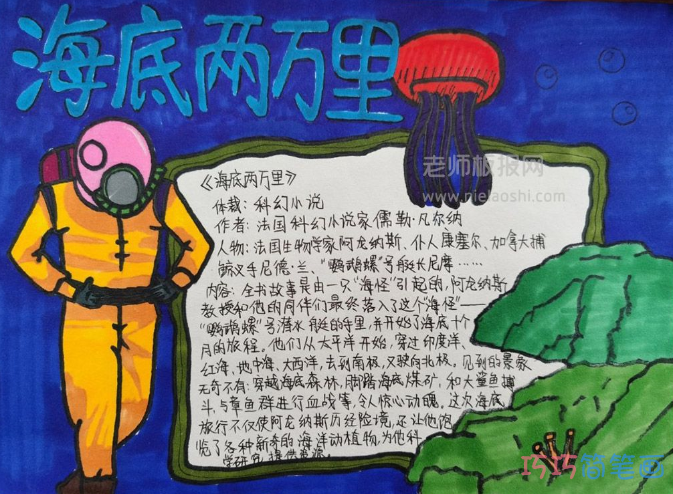 海底两万里
老师板报网
www.nielaoshi.com
《海底两万里》
体裁：科幻小说
作者：法国科幻小说家儒勒·凡尔纳
人物：法国生物学家阿龙纳斯、仆人康塞尔、加拿大捕
鲸叉手尼德·兰、"鹦鹉螺"号艇长尼摩……
内容：全书故事是由一只"海怪"引起的，阿龙纳斯
教授和他的同伴们最终落入了这个"海怪"——
"鹦鹉螺"号潜水艇的手里，并开始了海底十个
月的旅程。他们从太平洋开始，穿过印度洋、
红海、地中海、大西洋，去到南极，又驶向北极。见到的景象
无奇不有：穿越海底森林，脚踏海底煤矿，和大鲨鱼搏
斗，与章鱼群进行血战等，令人惊心动魄。这次海底
旅行不仅使阿龙纳斯历经险境，还让他饱
览了各种新奇的海洋动植物，为他科
学研究提供资源。
巧巧简笔画